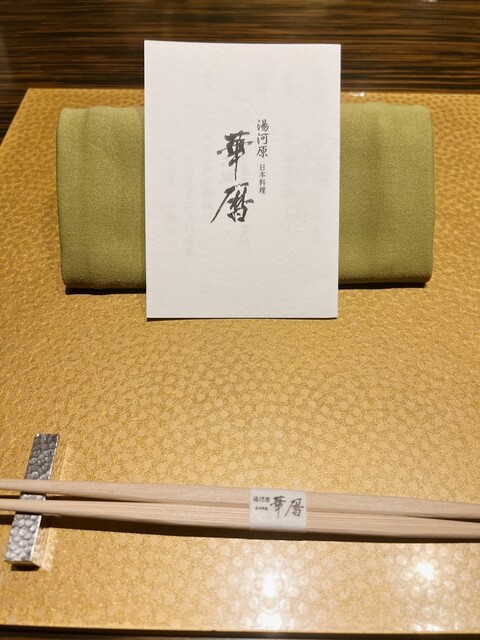 湯河原
日本料理
華暦
湯河原
日本料理
華暦